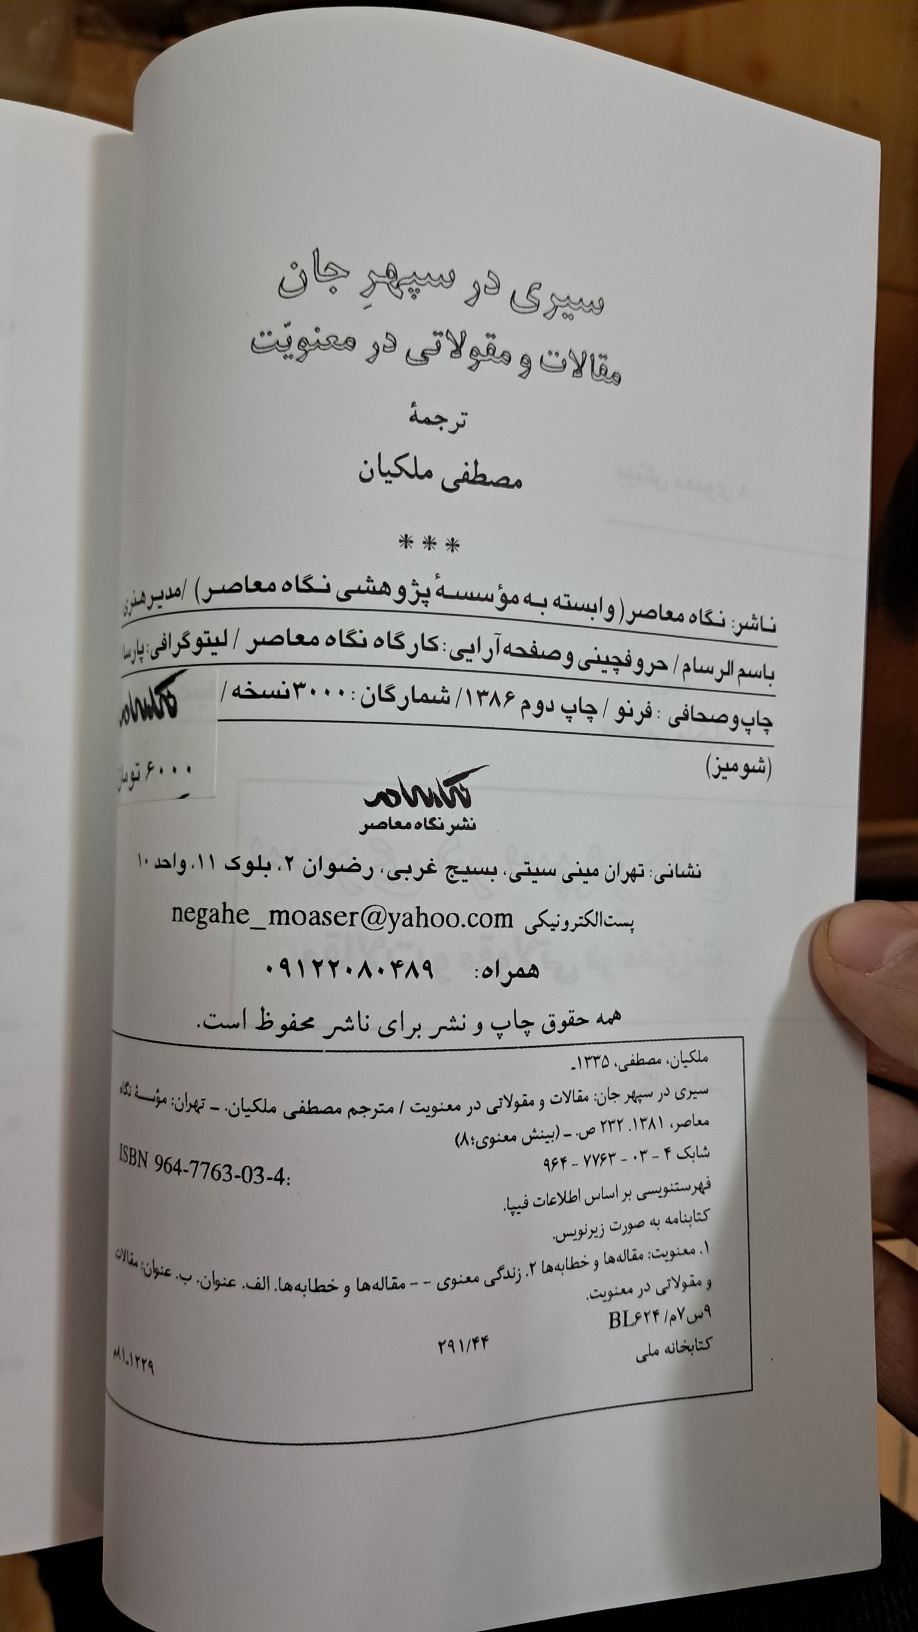 سیری در سپهرِ جان
مقالات و مقولاتی در معنویّت
ترجمهٔ
مصطفی ملکیان
***
ناشر: نگاه معاصر (وابسته به مؤسسهٔ پژوهشی نگاه معاصر) / مدیر هنری
باسم الرسام / حروفچینی و صفحه‌آرایی: کارگاه نگاه معاصر / لیتوگرافی: پارسا
چاپ و صحافی: فرنو / چاپ دوم ۱۳۸۶ / شمارگان: ۳۰۰۰ نسخه /
۶۰۰۰ تومان
(شومیز)
نشر نگاه معاصر
نشانی: تهران مینی سیتی، بسیج غربی، رضوان ۲، بلوک ۱۱، واحد ۱۰
پست‌الکترونیکی negahe_moaser@yahoo.com
همراه: ۰۹۱۲۲۰۸۰۴۸۹
همه حقوق چاپ و نشر برای ناشر محفوظ است.
ملکیان، مصطفی، ۱۳۳۵ـ
سیری در سپهر جان: مقالات و مقولاتی در معنویت / مترجم مصطفی ملکیان. ـ تهران: مؤسسهٔ نگاه
معاصر، ۱۳۸۱. ۲۳۲ ص. ـ (بینش معنوی؛ ۸)
شابک ۴ - ۰۳ - ۷۷۶۳ - ۹۶۴
ISBN 964-7763-03-4:
فهرستنویسی بر اساس اطلاعات فیپا.
کتابنامه به صورت زیرنویس.
۱. معنویت: مقاله‌ها و خطابه‌ها ۲. زندگی معنوی - - مقاله‌ها و خطابه‌ها. الف. عنوان. ب. عنوان: مقالات
و مقولاتی در معنویت.
۹س۷م/ BL۶۲۴
۲۹۱/۴۴
کتابخانه ملی
۸۱ـ۱۲۲۹م